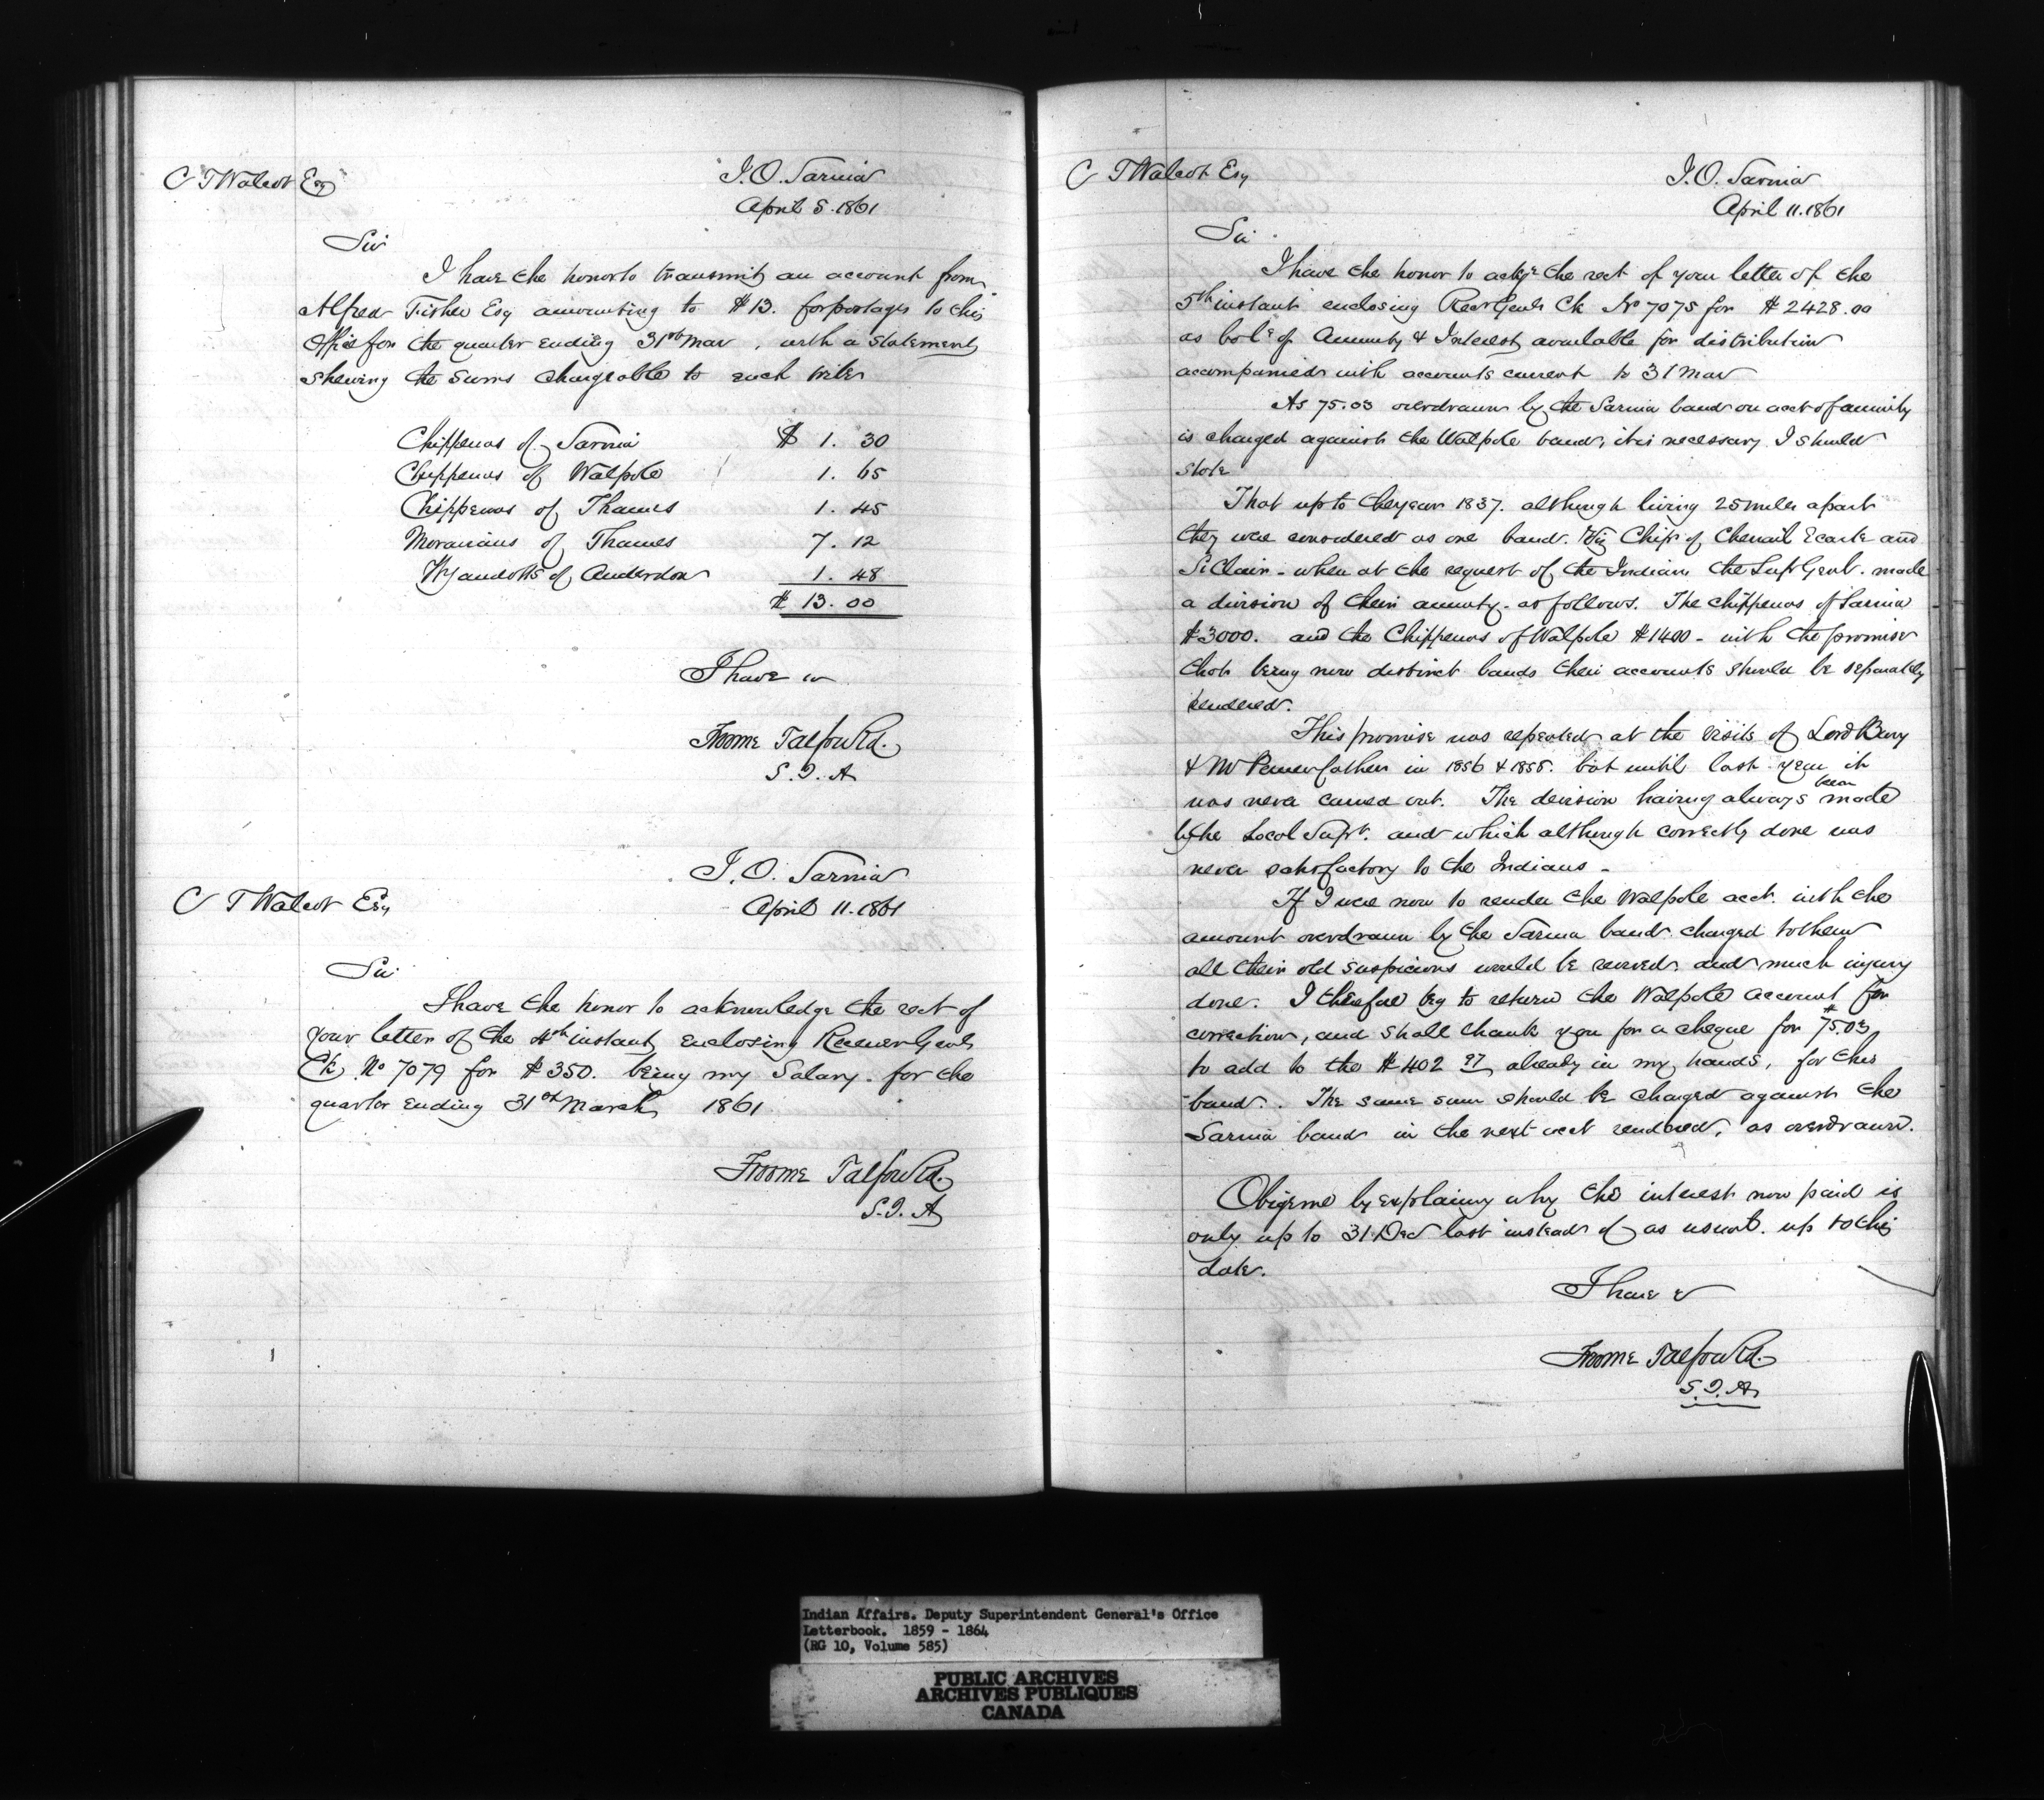 C T Walcot Esq
I. O. Sarnia
April 5. 1861
Sir
I have the honor to transmit an account from
Alfred Fisher Esq amounting to $13. for postages to this
Office for the quarter ending 31st Mar, with a statement
shewing the sums chargeable to each tribe
Chippewas of Sarnia $ 1. 30
Chippewas of Walpole 1. 65
Chippewas of Thames 1. 45
Moravians of Thames 7. 12
Wyandotts of Anderdon 1. 48
$ 13. 00
I have &
Froome Talfourd.
S. I. A
I. O. Sarnia
C T Walcot Esq
April 11. 1861
Sir
I have the honor to acknowledge the rect of
your letter of the 4th instant enclosing Receiver Genls
Ck No 7079 for $350. being my Salary for the
quarter ending 31st March 1861
Froome Talfourd.
S. I. A
C T Walcot Esq
I. O. Sarnia
April 11. 1861
Sir
I have the honor to ackge the rect of your letter of the
5th instant enclosing Recr Genls Ck No 7075 for $2428.00
as bale of Annuity & Interest available for distribution
accompanied with accounts current to 31 Mar
As 75.03 overdrawn by the Sarnia band on acct of annuity
is charged against the Walpole band, it is necessary I should
state
That up to the year 1837. although living 25 miles apart
they were considered as one band. Viz Chips of Chenail Ecarte and
St Clair - when at the request of the Indians the Supt Genl. made
a division of their annuity as follows. The Chippewas of Sarnia
$3000. and the Chippewas of Walpole $1400 - with the promise
that being now distinct bands their accounts should be separately
rendered.
This promise was repeated at the visits of Lord Bury
& Mr Pennefather in 1856 & 1858. but until last year it
was never carried out. The division having always been made
by the Local Supt. and which although correctly done was
never satisfactory to the Indians -
If I were now to render the Walpole acct. with the
amount overdrawn by the Sarnia band charged to them
all their old suspicions would be revived and much injury
done. I therefore beg to return the Walpole account for
correction, and shall thank you for a cheque for $75.03
to add to the $402 97 already in my hands, for this
band. The same sum should be charged against the
Sarnia band in the next acct rendered, as overdrawn.
Obige me by explaining why the interest now paid is
only up to 31 Dec last instead of as usual. up to this
date.
I have &
Froome Talfourd.
S. I. A
Indian Affairs. Deputy Superintendent General's Office
Letterbook. 1859 - 1864
(RG 10, Volume 585)
PUBLIC ARCHIVES
ARCHIVES PUBLIQUES
CANADA